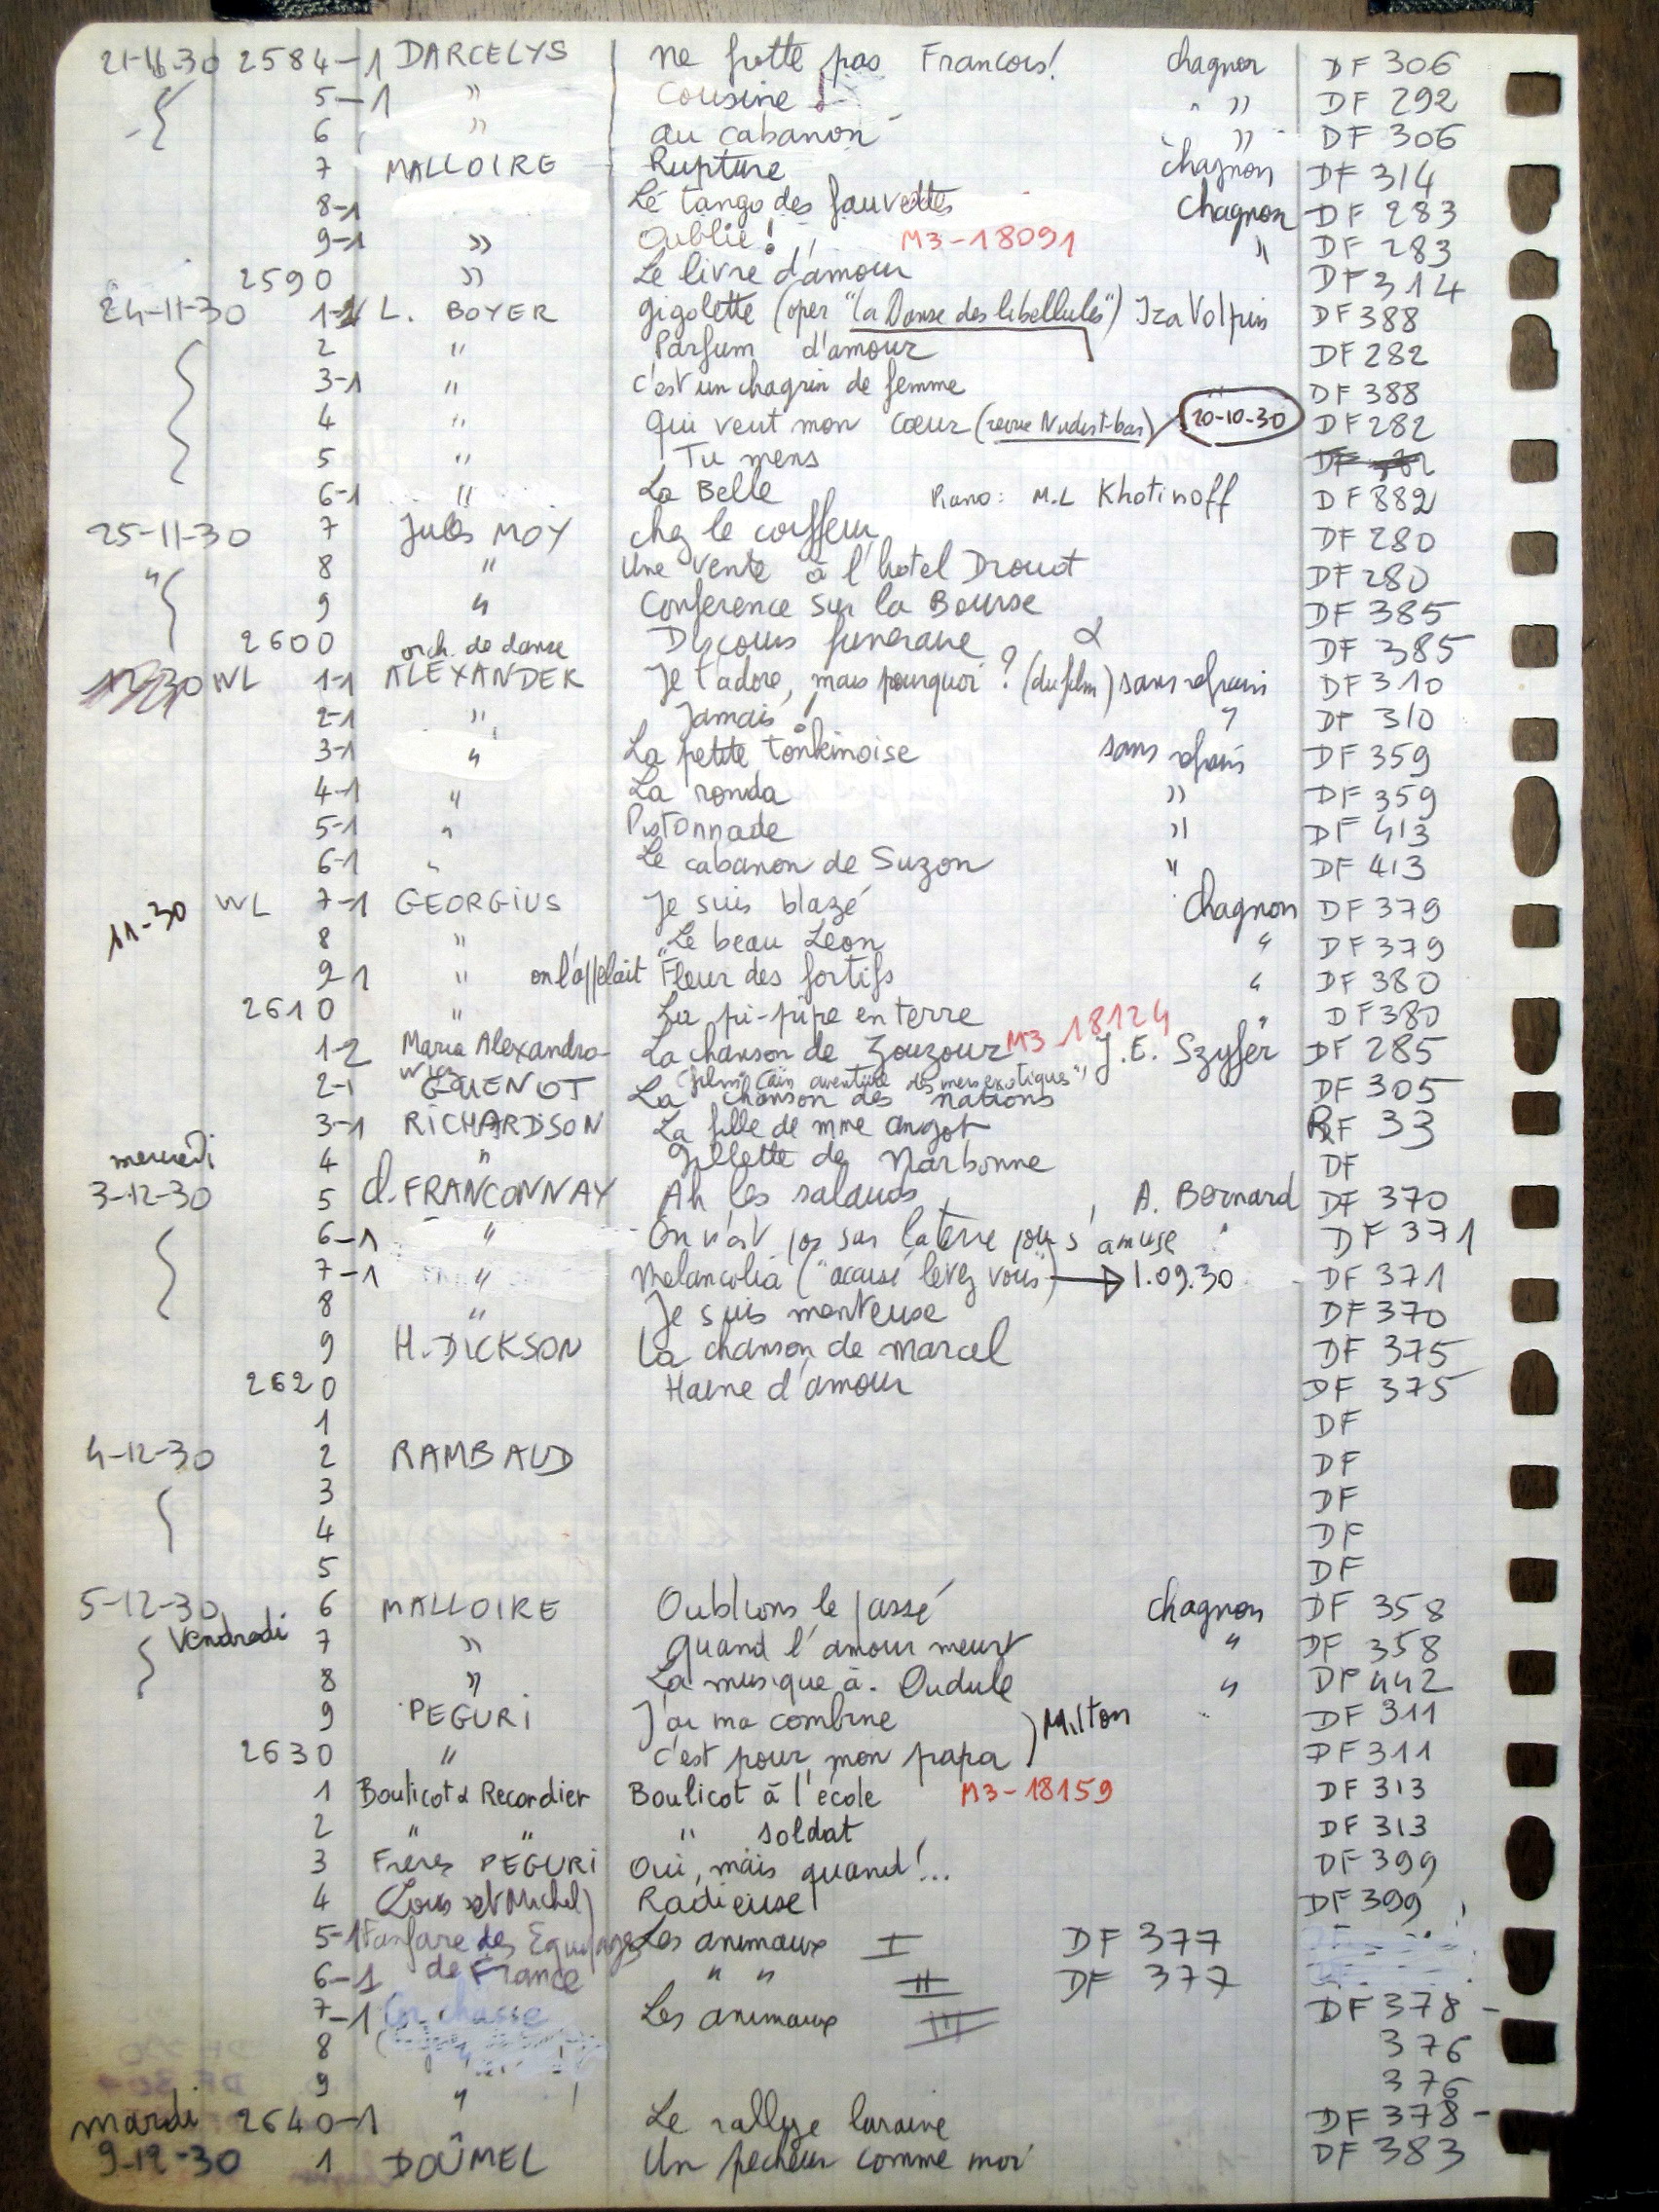 21-11-30 2584-1 DARCELYS ne frotte pas François! chagnon DF 306
5-1 " Cousine ! " DF 292
6 " au cabanon " DF 306
7 MALLOIRE Rupture chagnon DF 314
8-1 Le tango des fauvettes chagnon DF 283
9-1 " Oublie! M3-18091 " DF 283
2590 " Le livre d'amour DF 314
24-11-30 1- L. BOYER gigolette (oper "la Danse des libellules") Iza Volpin DF 388
2 " Parfum d'amour DF 282
3-1 " c'est un chagrin de femme " DF 388
4 " qui veut mon cœur (revue Nudist-bar) 20-10-30 DF 282
5 " Tu mens
6-1 " La Belle Piano: M.L Khotinoff DF 882
25-11-30 7 Jules MOY chez le coiffeur DF 280
" 8 " Une vente à l'hotel Drouot DF 280
9 " Conference sur la Bourse DF 385
2600 orch. de danse Discours funeraire DF 385
WL 1-1 ALEXANDER Je t'adore, mais pourquoi? (du film) sans refrain DF 310
2-1 " Jamais! " DF 310
3-1 " La petite tonkinoise sans refrain DF 359
4-1 " La ronda " DF 359
5-1 " Pistonnade " DF 413
6-1 " Le cabanon de Suzon " DF 413
11-30 WL 7-1 GEORGIUS Je suis blazé chagnon DF 379
8 " Le beau Léon " DF 379
9-1 " on l'appelait "Fleur des fortifs " DF 380
2610 " La pi-pipe en terre " DF 380
1-2 Maria Alexandrowicz La chanson de Zouzour M3 18124 J.E. Szyfer DF 285
(film "Caïn aventure des mers exotiques")
2-1 GUENOT La chanson des nations DF 305
3-1 RICHARDSON La fille de mme angot RF 33
mercredi 4 " Gillette de Narbonne DF
3-12-30 5 d. FRANCONNAY Ah les salauds A. Bernard DF 370
6-1 " On n'est pas sur la terre pour s'amuse " DF 371
7-1 " Melancolia ("accusé levez vous") → 1.09.30 DF 371
8 " Je suis menteuse DF 370
9 H. DICKSON La chanson de marcel DF 375
2620 Haine d'amour DF 375
1 DF
4-12-30 2 RAMBAUD DF
3 DF
4 DF
5 DF
5-12-30 6 MALLOIRE Oublions le passé chagnon DF 358
Vendredi 7 " Quand l'amour meurt " DF 358
8 " La musique à Dudule " DF 442
9 PEGURI J'ai ma combine ) Milton DF 311
2630 " c'est pour mon papa DF 311
1 Boulicot & Recordier Boulicot à l'école M3-18159 DF 313
2 " " " soldat DF 313
3 Frères PEGURI Oui, mais quand!... DF 399
4 (Louis et Michel) Radieuse DF 399
5-1 Fanfare des Equipages Les animaux I DF 377
6-1 de France " " II DF 377
7-1 Cor chasse Les animaux III DF 378 -
8 376
9 " 376
mardi 2640-1 Le rallye DF 378 -
9-12-30 1 DOÛMEL Un pecheur comme moi DF 383